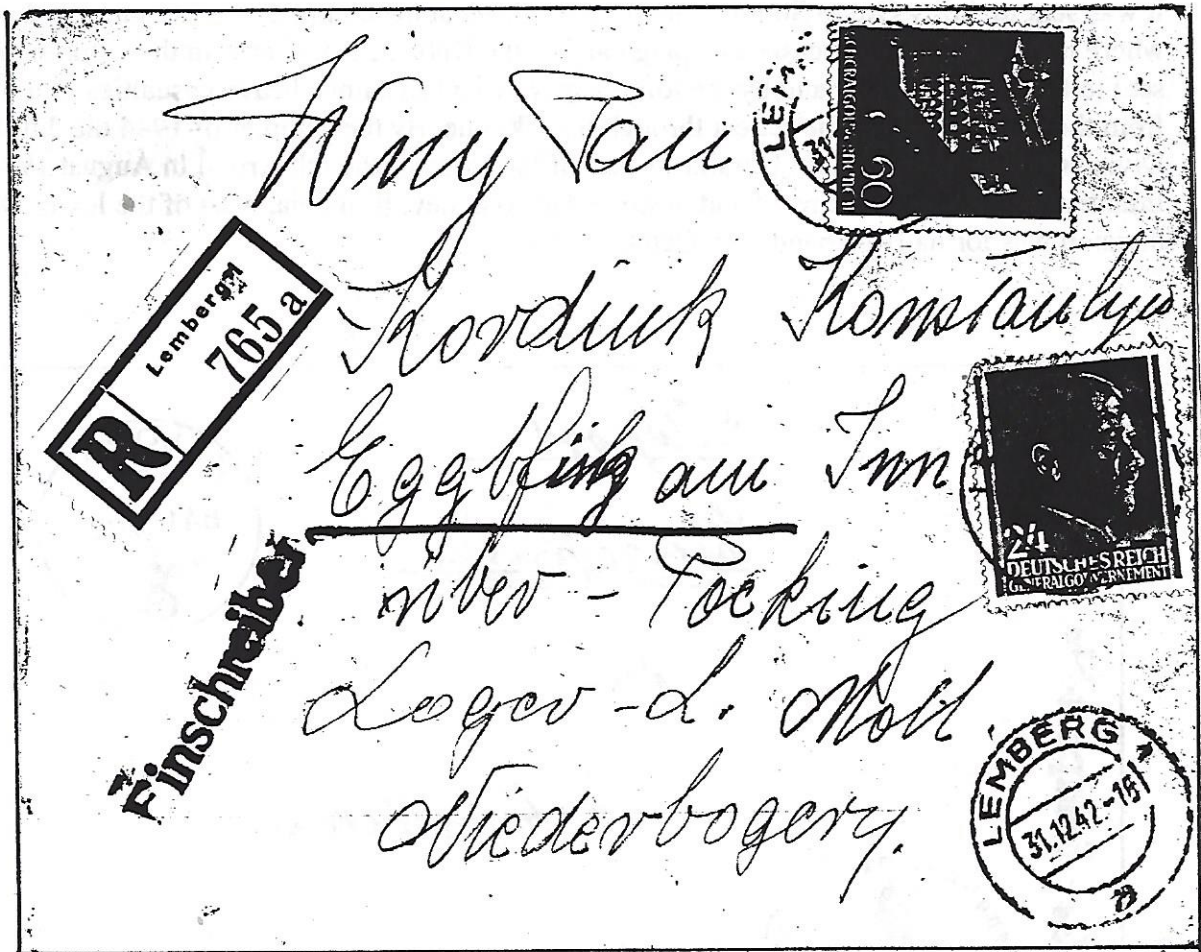 Wny Pan
Kordiuk Konstantyn
Eggbfing am Inn
über - Pocking
Lager - L. Moll.
Niederbayern.
R
Lemberg 1
765 a
Einschreiben
60
GENERALGOUVERNEMENT
24
DEUTSCHES REICH
GENERALGOUVERNEMENT
LEMBERG 1
31.12.42-18
a